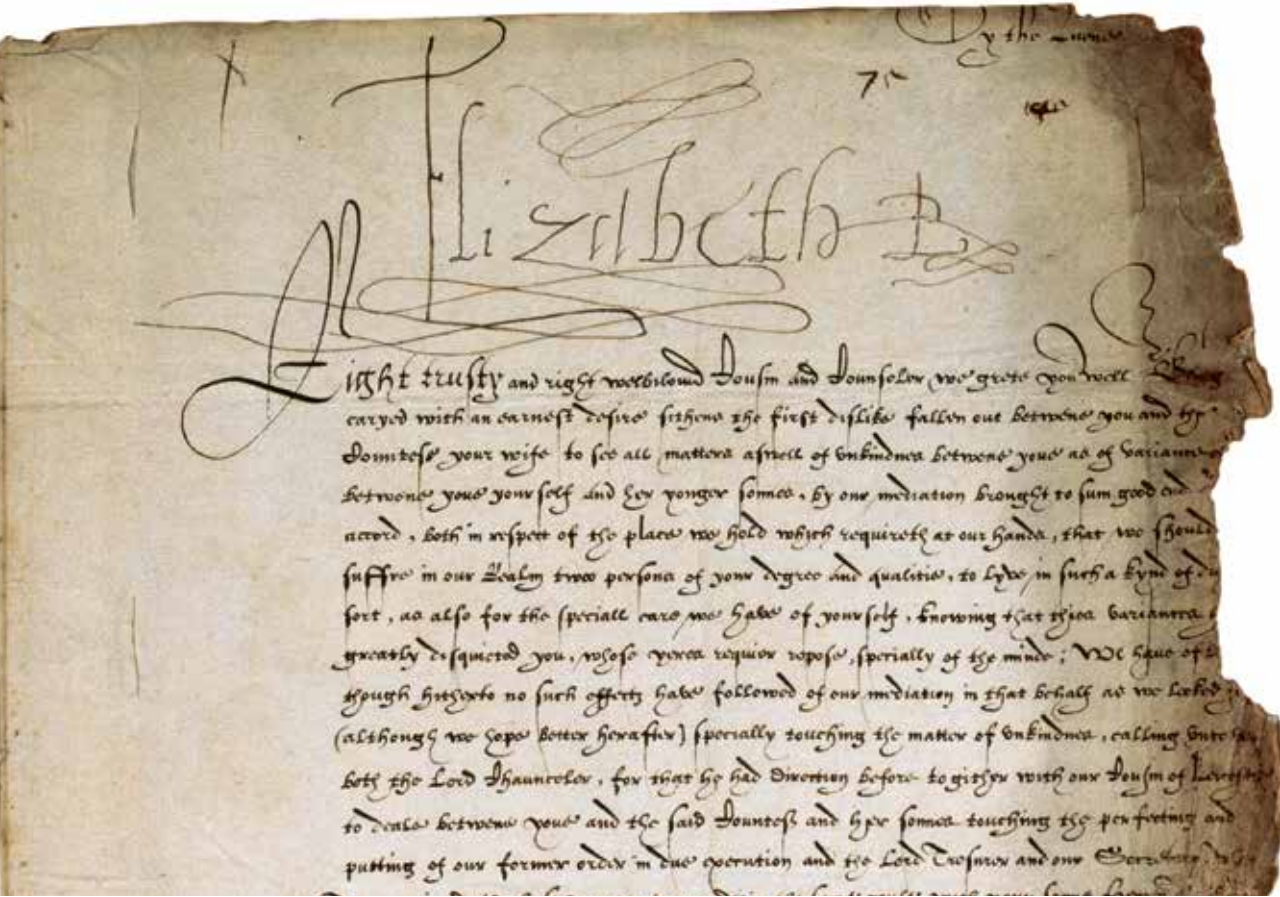 By the Quene
75
Elizabeth R
Right trusty and right welbiloved Cousin and Counseler, we grete you well. Being
caryed with an earnest desire sithens the first dislike fallen out betwene you and the
Countesse your wife to see all matters aswell of unkindnes betwene youe as of variance
betwene youe your self and her yonger sonnes, by our mediation brought to sum good end
accord, both in respect of the place we hold which requireth at our hands, that we should
suffre in our Realm twoo persons of your degree and qualitie, to lyve in such a kynd of
sort, as also for the speciall care we have of yourself, knowing that thies variances
greatly disquieted you, whose yeres requier repose, specially of the minde; We have of
though hitherto no such effects have followed of our mediation in that behalf as we looked
(although we hope better herafter) specially touching the matter of unkindnes, calling unto
both the Lord Chaunceler, for that he had direction before togither with our Cousin of Leycester
to deale betwene youe and the said Countess and her sonnes touching the perfecting and
putting of our former order in due execution and the Lord Tresurer and our Secretary